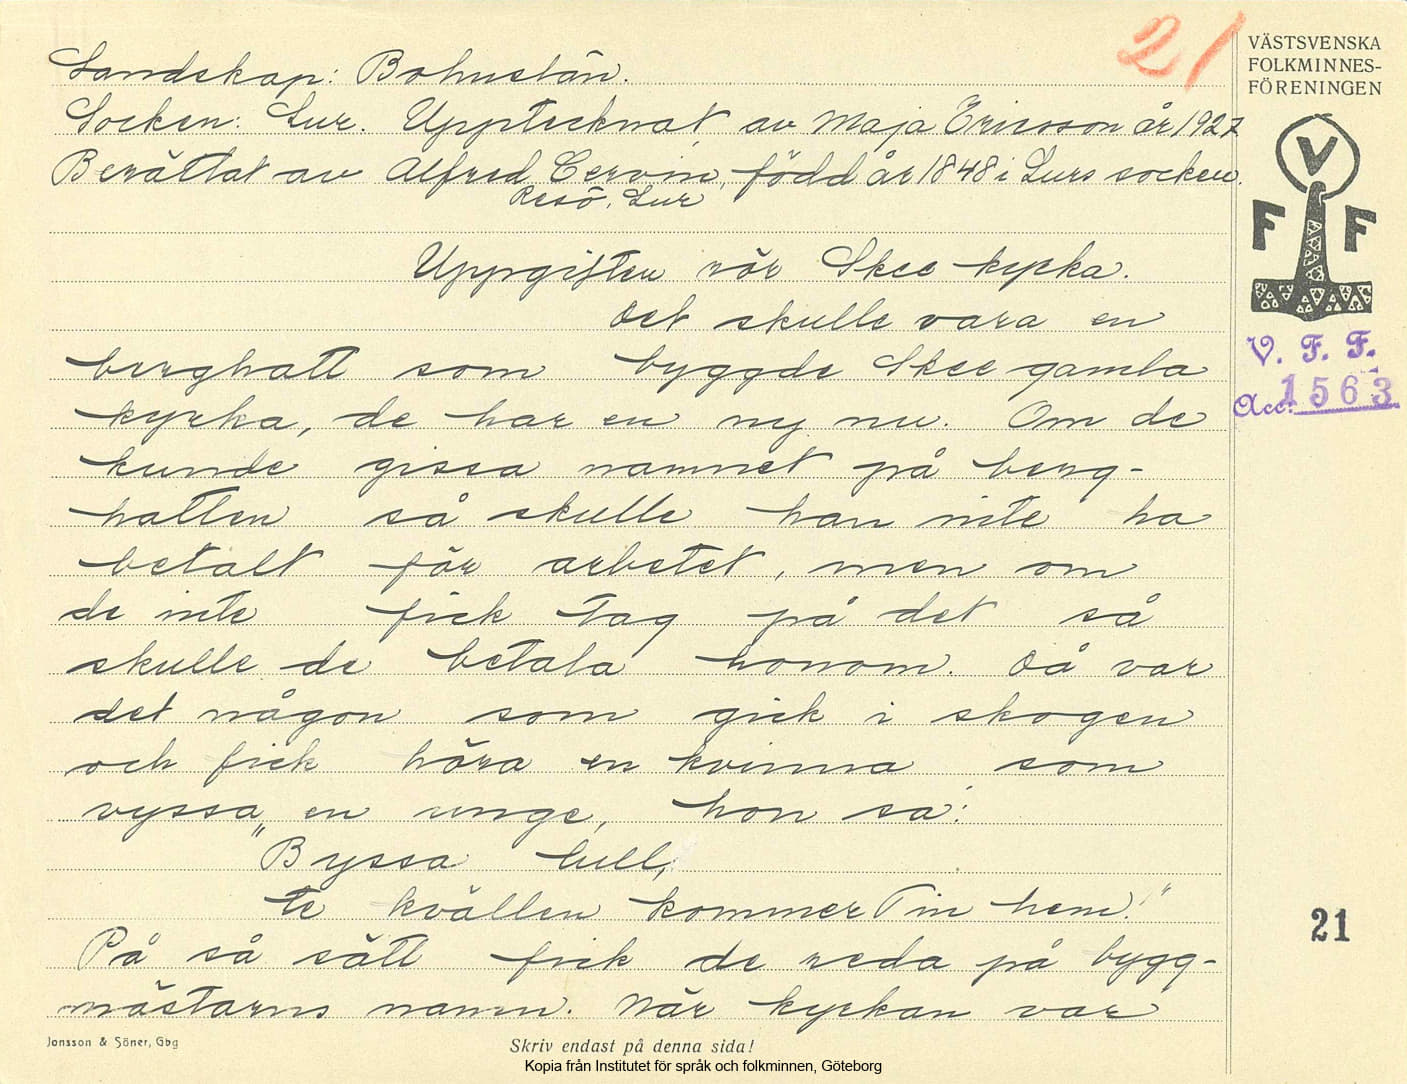 21
VÄSTSVENSKA
FOLKMINNES-
FÖRENINGEN
V
F F
V. F. F.
Acc. 1563
Landskap: Bohuslän.
Socken: Lur. Upptecknat av Maja Ericsson år 1927
Berättat av Alfred Cervin, född år 1848 i Lurs socken.
Resö, Lur
Uppgiften rör Skee kyrka.
Det skulle vara en
berghatt som byggde Skee gamla
kyrka, de har en ny nu. Om de
kunde gissa namnet på berg-
hatten så skulle han inte ha
betalt för arbetet, men om
de inte fick tag på det så
skulle de betala honom. Då var
det någon som gick i skogen
och fick höra en kvinna som
vyssa en unge, hon sa:
"Byssa lull,
te kvällen kommer Tin hem."
På så sätt fick de reda på bygg-
mästarns namn. När kyrkan var
21
Jonsson & Söner, Gbg
Skriv endast på denna sida!
Kopia från Institutet för språk och folkminnen, Göteborg